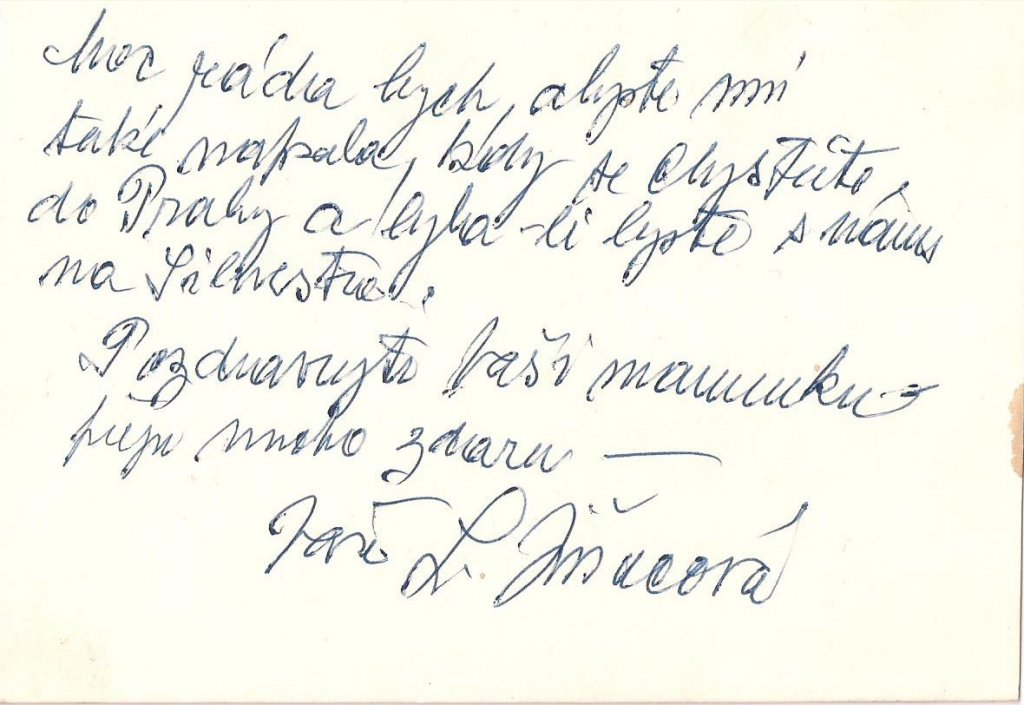 Moc ráda bych, abyste mi
také napsala, kdy se chystáte
do Prahy a byla-li byste s námi
na Silvestra.
Pozdravujte Vaši maminku
přeji mnoho zdaru —
Vaše L.